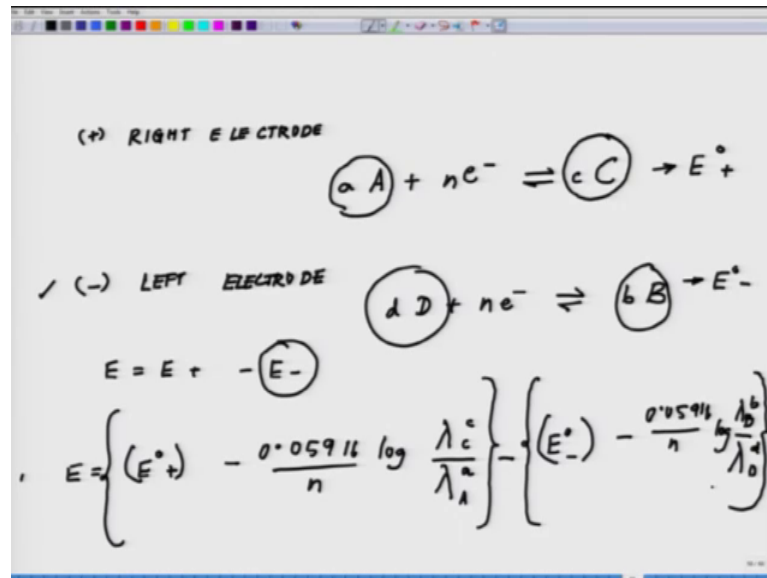 (+) RIGHT ELECTRODE
a A + n e⁻ ⇌ c C → E°₊
(-) LEFT ELECTRODE
d D + n e⁻ ⇌ b B → E°₋
E = E₊ - E₋
E = {(E°₊) - 0.05916/n log λ_C^c/λ_A^a} - {(E°₋) - 0.05916/n log λ_B^b/λ_D^d}